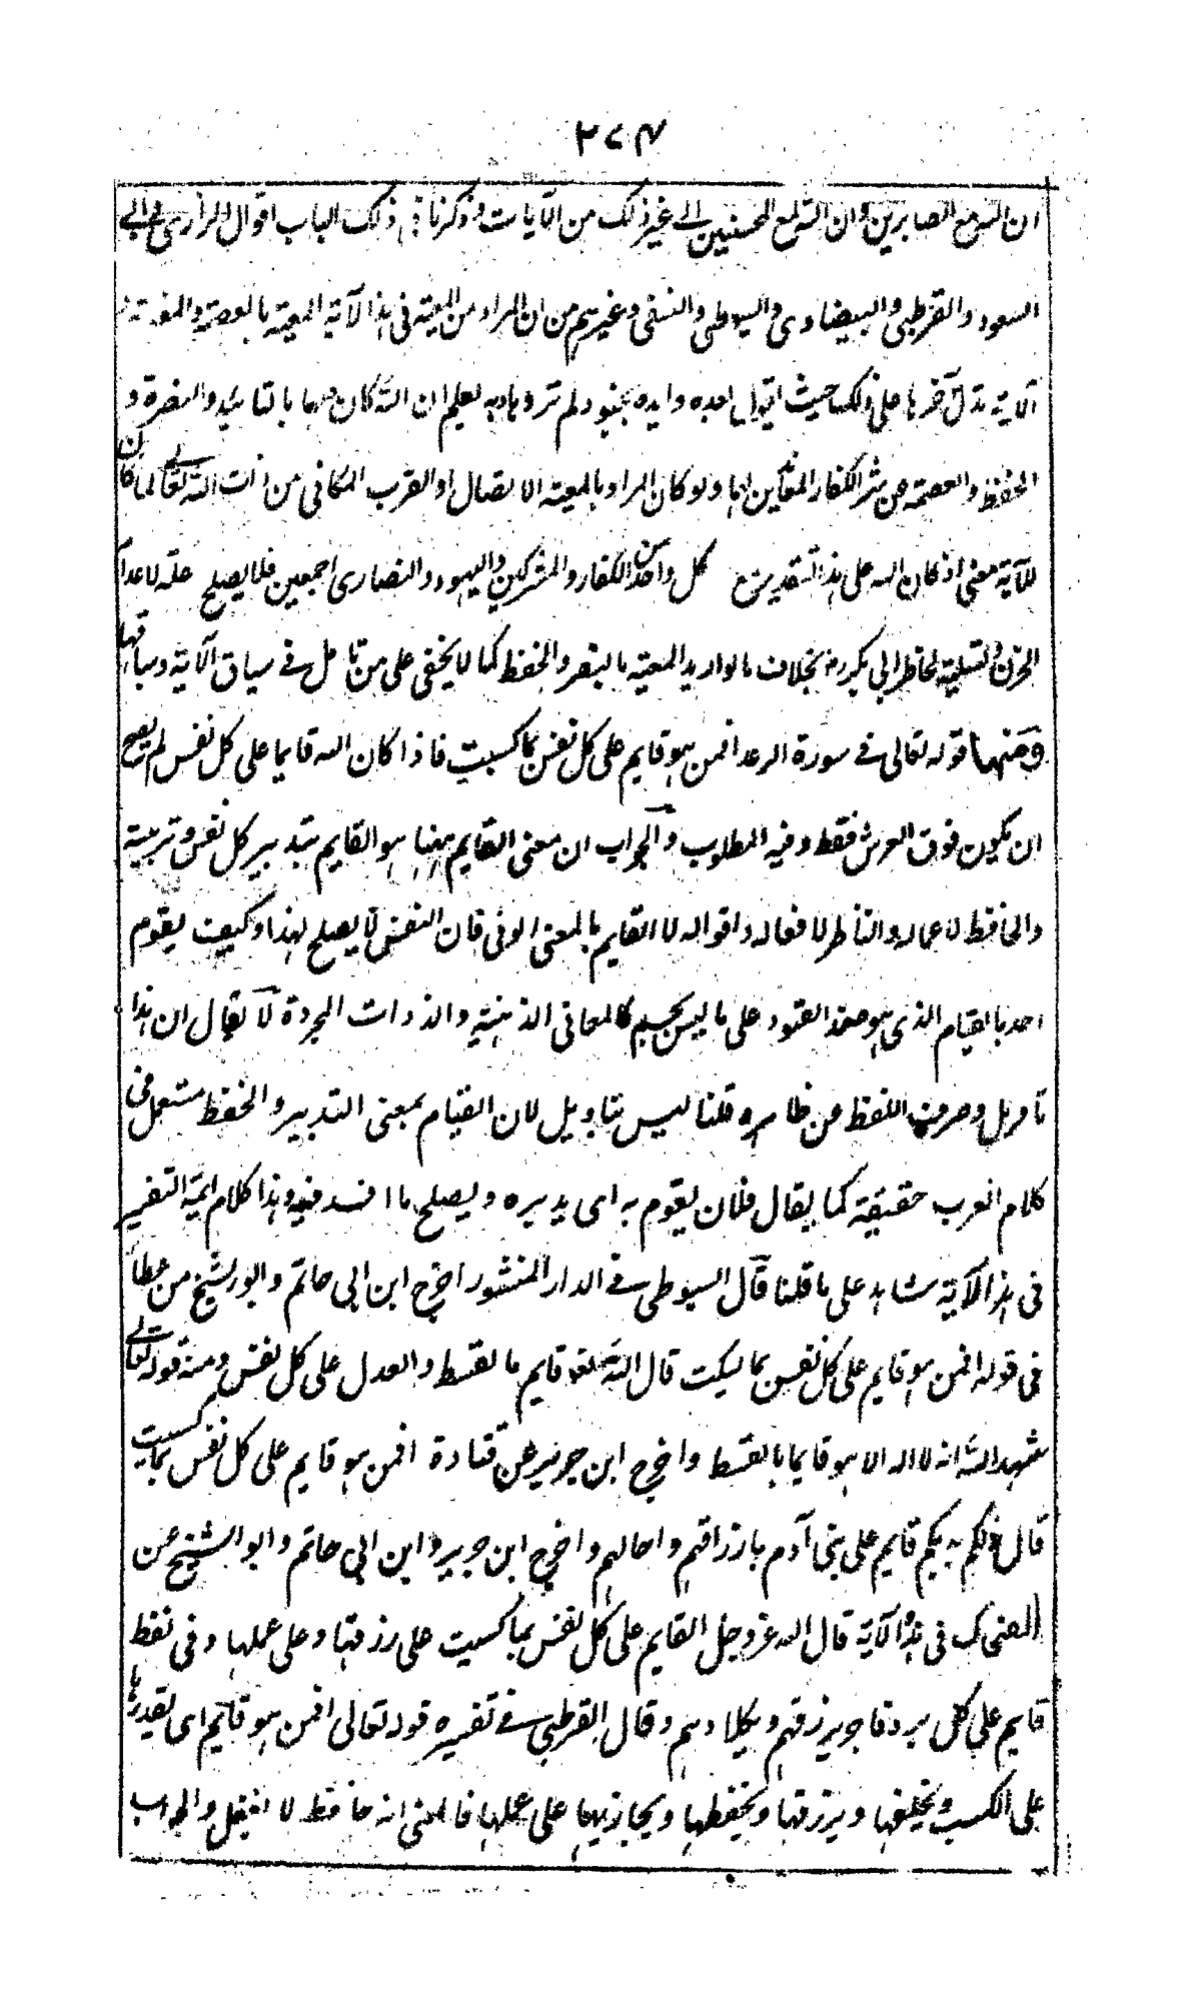 ٢٧٤
ان الله مع الصابرين وان الله لمع المحسنين الى غير ذلك من الآيات وذكرنا في ذلك الباب اقوال الرازي وابي
السعود والقرطبي والبيضاوي والسيوطي والنسفي وغيرهم من ان المراد من المعية في هذه الآية المعية بالعصمة والمعونة
الآية تدل آخرها على ذلك حيث وايده بجنود لم تروها وبه يعلم ان الله كان معهما بالتائيد والنصرة و
الحفظ والعصمة عن شر الكفار ولو كان المراد بالمعية الاتصال او القرب المكاني من ذات الله تعالى لما كان
للآية معنى اذ كان الله على هذا التقدير مع كل واحد من الكفار والمشركين واليهود والنصارى اجمعين فلا يصلح علة لاعدام
الحزن والتسلية لخاطر ابي بكر رض بخلاف ما لو اريد المعية بالنصر والحفظ كما لا يخفى على من تامل في سياق الآية وسباقها
ومنها قوله تعالى في سورة الرعد افمن هو قايم على كل نفس بما كسبت فاذا كان الله قايما على كل نفس لم يصح
ان يكون فوق العرش فقط وفيه المطلوب والجواب ان معنى القايم ههنا هو القايم بتدبير كل نفس وتربيته
والحافظ لاعماله والناظر لافعاله واقواله لا القايم بالمعنى فان النفس لا يصلح لهذا وكيف يقوم
احد بالقيام الذي هو ضد القعود على ما ليس بجسم كالمعاني الذهنية والذوات المجردة لا يقال ان هذا
تاويل وصرف اللفظ عن ظاهره قلنا ليس بتاويل لان القيام بمعنى التدبير والحفظ مستعمل في
كلام العرب حقيقة كما يقال فلان يقوم به اى يدبره ويصلح ما افسد فيه وهذا كلام ايمة التفسير
في هذه الآية شاهد على ما قلنا قال السيوطي في الدار المنثور اخرج ابن ابي حاتم وابو الشيخ عن عطا
في قوله افمن هو قايم على كل نفس بما كسبت قال الله تعالى قايم بالقسط والعدل على كل نفس ومنه قوله تعالى
شهد الله انه لا اله الا هو قايما بالقسط واخرج ابن جرير عن قتادة افمن هو قايم على كل نفس بما كسبت
قال ذلكم ربكم قايم على بني آدم بارزاقهم واجالهم واخرج ابن جرير وابن ابي حاتم وابو الشيخ عن
الضحاك في هذه الآية قال الله عز وجل القايم على كل نفس بما كسبت على رزقها وعلى عملها وفي لفظ
قايم على كل بر وفاجر يرزقهم ويكلاوهم وقال القرطبي في تفسيره قوله تعالى افمن هو قايم اى يقدرها
على الكسب ويخلقها ويرزقها ويحفظها ويجازيها على عملها فالمعنى انه حافظ لا يغفل والجواب